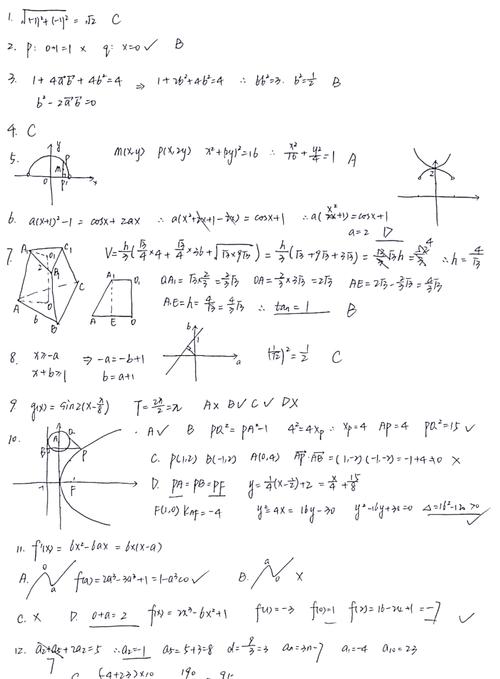 1. √((-1)²+(-1)²) = √2 C
2. p: 0+1=1 × q: x=0 ✓ B
3. 1+4a⃗b⃗+4b²=4 ⇒ 1+2b²+4b²=4 ∴ 6b²=3. b²=1/2 B
b²-2a⃗b⃗=0
4. C
5. M(x,y) P(x,2y) x²+(2y)²=16 ∴ x²/16+y²/4=1 A
6. a(x+1)²-1=cosx+2ax ∴ a(x²+2x+1-2x)=cosx+1 ∴ a(x²+1)=cosx+1
a=2 D
7. V=h/3(√3/4×4+√3/4×36+√(√3×9√3))=h/3(√3+9√3+3√3)=13/3√3h=52/3 ∴ h=4/√3
OA₁=√3×2/3=2/3√3 OA=2/3×3√3=2√3 AE=2√3-2/3√3=4/3√3
A₁E=h=4/√3=4/3√3 ∴ tan=1 B
8. x≥-a ⇒ -a=-b+1 (1/√2)²=1/2 C
x+b≥1 b=a+1
9. g(x)=sin2(x-π/8) T=2π/2=π A× B✓ C✓ D×
10. A✓ B PQ²=PA²-1 4²=4xp ∴ xp=4 AP=4 PQ²=15 ✓
C. P(1,2) B(-1,2) A(0,4)
D. PA=PB=PF
F(1,0) KAF=-4 y²=4x=16y-30 y²-16y+30=0
11. f'(x)=6x²-6ax=6x(x-a)
A. f(a)=2a³-3a³+1=1-a³<0 ✓ B. ×
C. × D. 0+a=2 f(x)=2x³-6x²+1 f(-1)=-3 f(0)=1 f(2)=16-24+1=-7 ✓
12. a₂+a₅+2a₂=5 ∴ a₂=-1 a₅=5+3=8 d=9/3=3 an=3n-7 a₁=-4 a₁₀=23